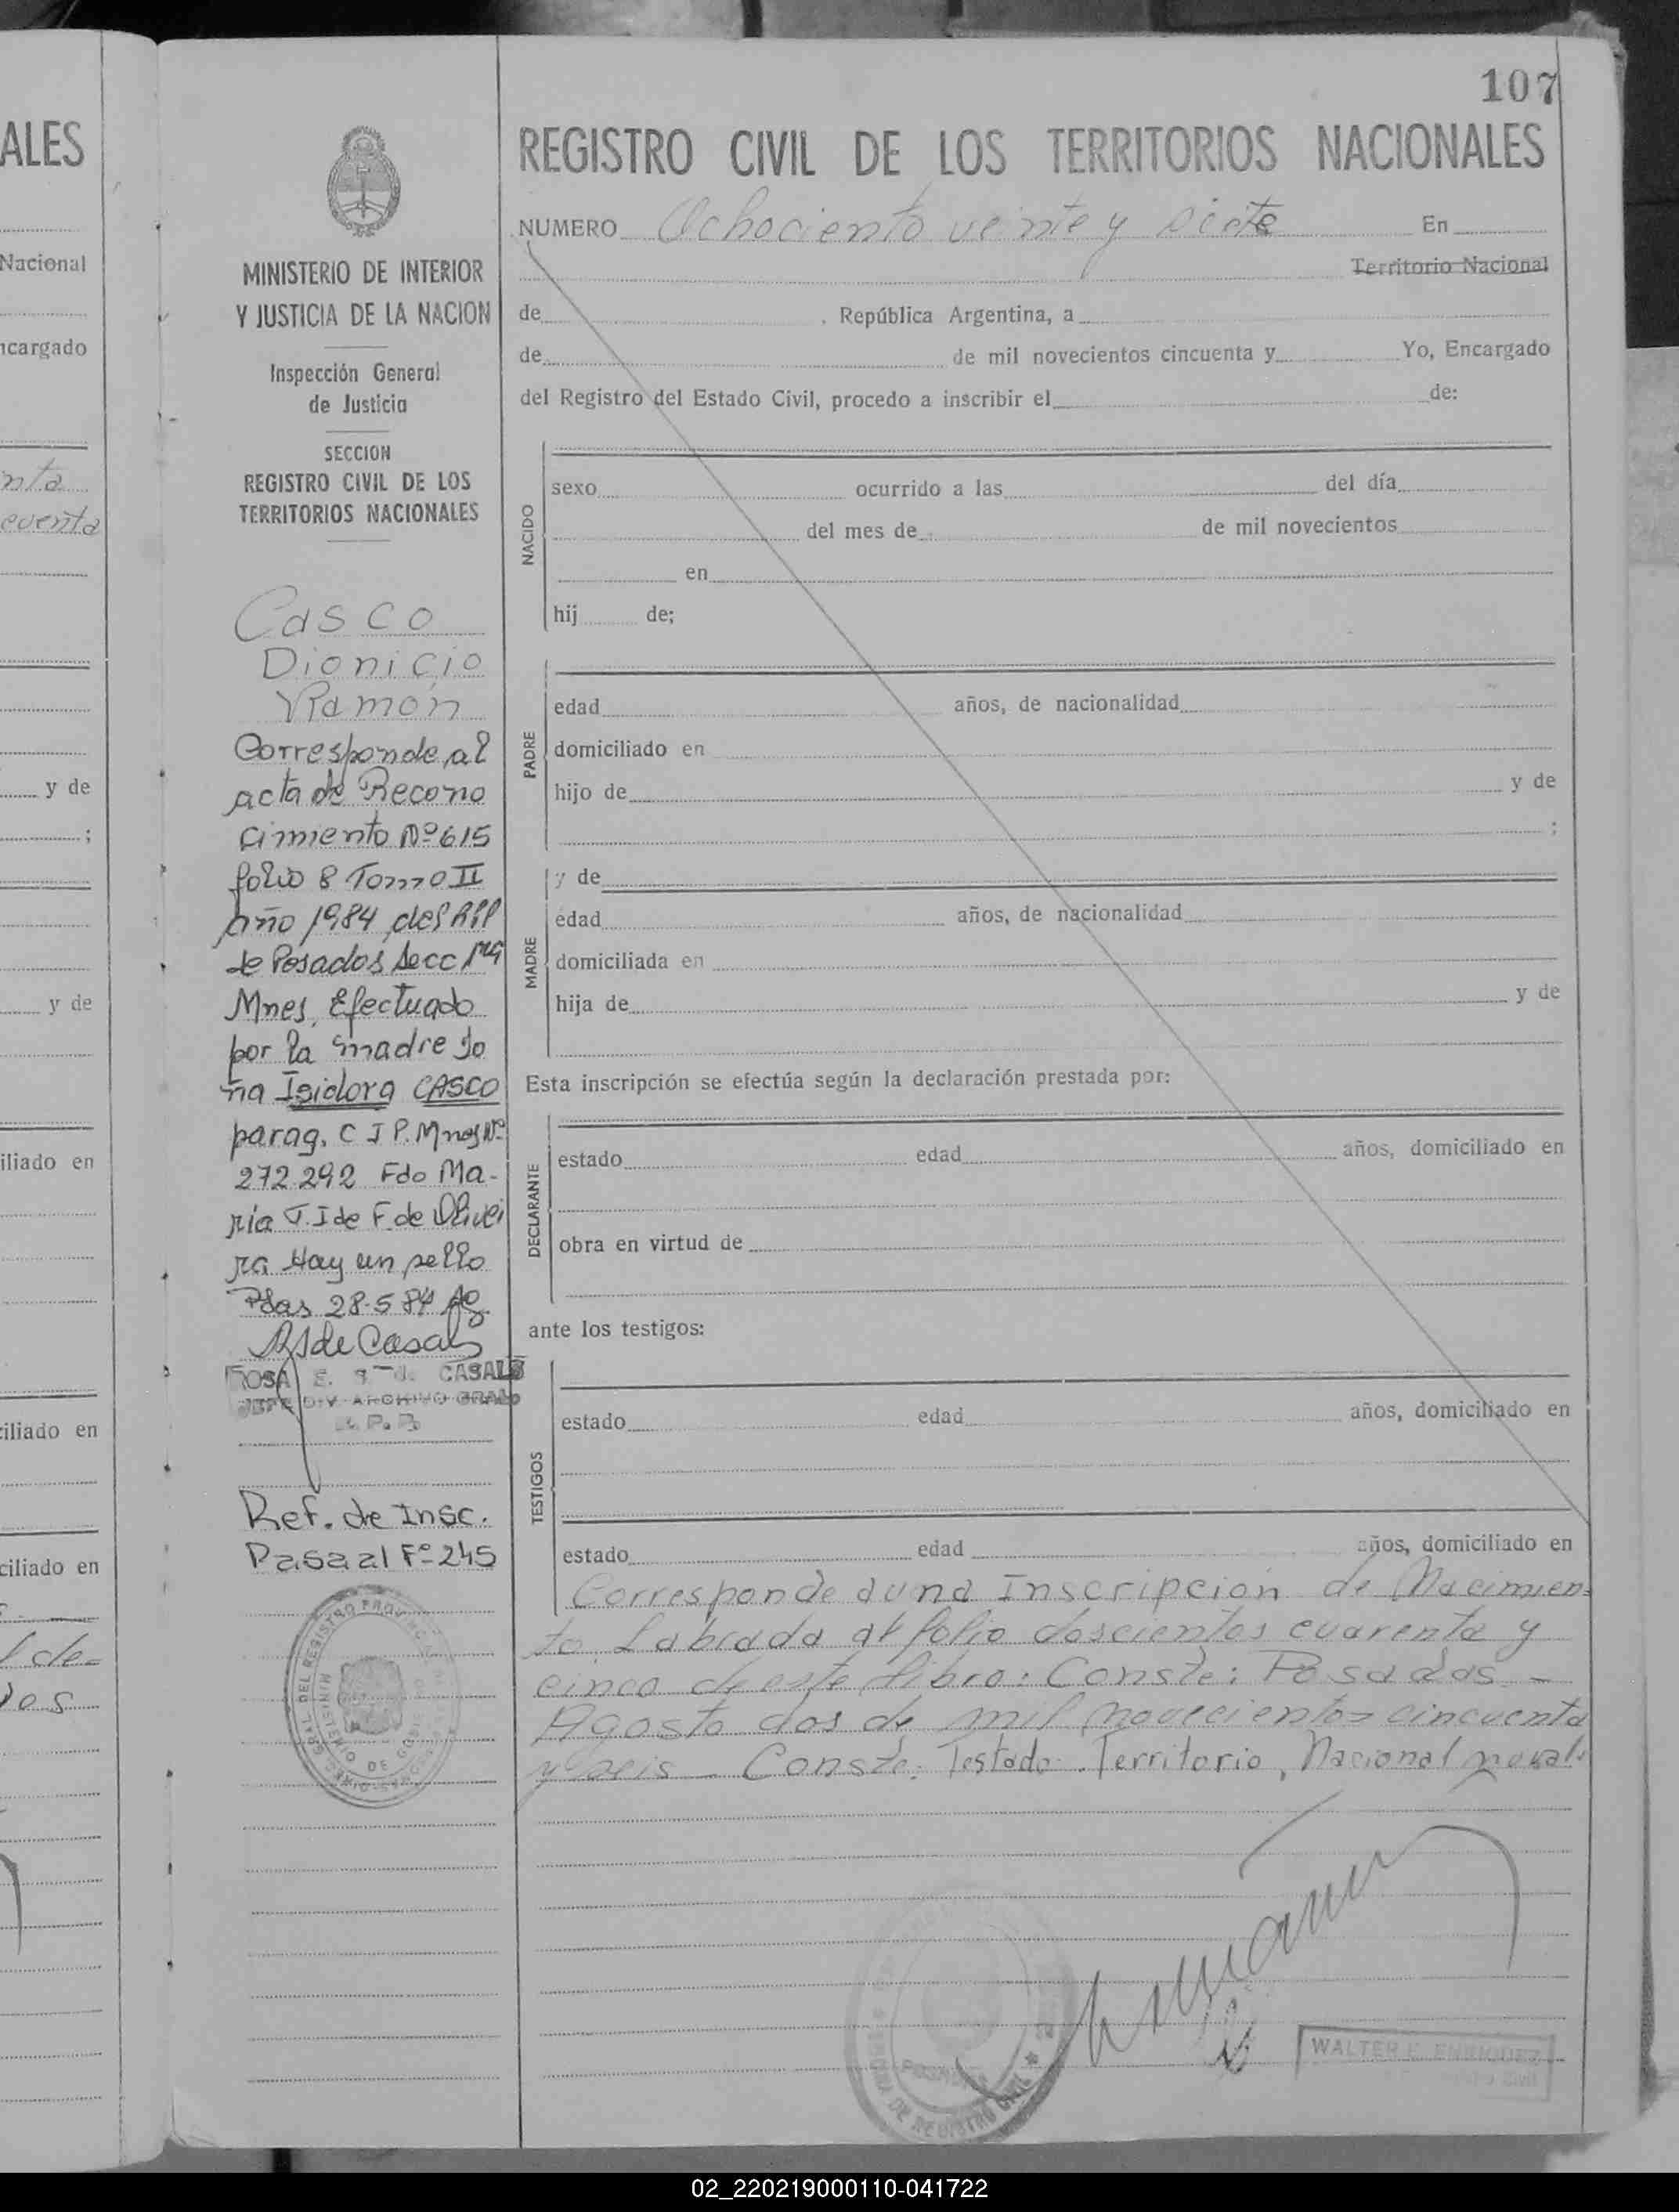 ALES
Nacional
ncargado
nta
cuenta
y de
;
y de
iliado en
ciliado en
ciliado en
l de=
dos
107
REGISTRO CIVIL DE LOS TERRITORIOS NACIONALES
NUMERO Ochociento veinte y siete En
Territorio Nacional
de , República Argentina, a
de de mil novecientos cincuenta y Yo, Encargado
del Registro del Estado Civil, procedo a inscribir el de:
MINISTERIO DE INTERIOR
Y JUSTICIA DE LA NACION
Inspección General
de Justicia
SECCION
REGISTRO CIVIL DE LOS
TERRITORIOS NACIONALES
Casco
Dionicio
Ramón
Corresponde al
acta de Recono
cimiento Nº 615
folio 8 Tomo II
año 1984 del
de Posadas Secc
Mnes, Efectuado
por la madre do
ña Isidora CASCO
parag. C I P. Mnes Nº
272.292 Fdo Ma-
ria T. I de F. de Olivei
ra Hay un sello
Pdas 28-5 84
RSde Casals
ROSA E. CASALS
JEFE DIV ARCHIVO GRAL
R. P. P.
Ref. de Insc.
Pasa al Fº 245
NACIDO
sexo ocurrido a las del día
del mes de de mil novecientos
en
hij de;
PADRE
edad años, de nacionalidad
domiciliado en
hijo de y de
;
y de
MADRE
edad años, de nacionalidad
domiciliada en
hija de y de
Esta inscripción se efectúa según la declaración prestada por:
DECLARANTE
estado edad años, domiciliado en
obra en virtud de
ante los testigos:
TESTIGOS
estado edad años, domiciliado en
estado edad años, domiciliado en
Corresponde a una Inscripción de Nacimien=
to. Labrada al folio doscientos cuarenta y
cinco de este libro: Conste: Posadas -
Agosto dos de mil novecientos cincuenta
y seis - Conste: Testado. Territorio, Nacional noval.
POSADAS
DE REGISTRO CIVIL
WALTER E. ENRIQUEZ
Civil
02_220219000110-041722